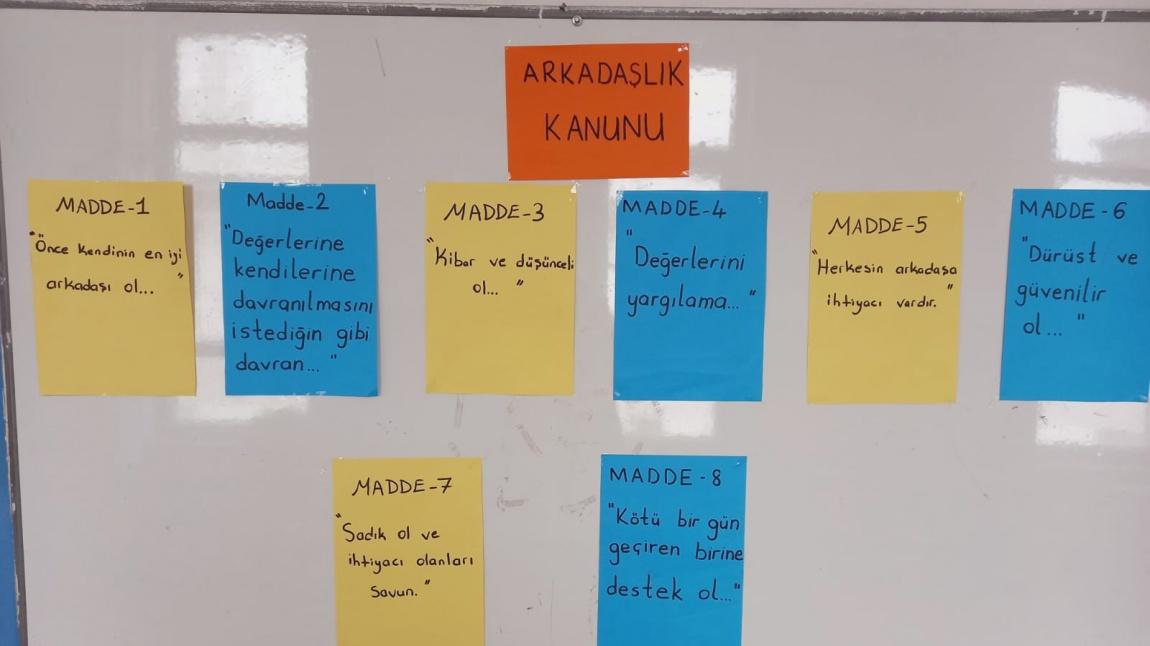 ARKADAŞLIK
KANUNU
MADDE-1
"Önce kendinin en iyi
arkadaşı ol... "
Madde-2
"Değerlerine
kendilerine
davranılmasını
istediğin gibi
davran... "
MADDE-3
"Kibar ve düşünceli
ol... "
MADDE-4
"Değerlerini
yargılama... "
MADDE-5
"Herkesin arkadaşa
ihtiyacı vardır. "
MADDE-6
"Dürüst ve
güvenilir
ol... "
MADDE-7
"Sadık ol ve
ihtiyacı olanları
savun. "
MADDE-8
"Kötü bir gün
geçiren birine
destek ol..."